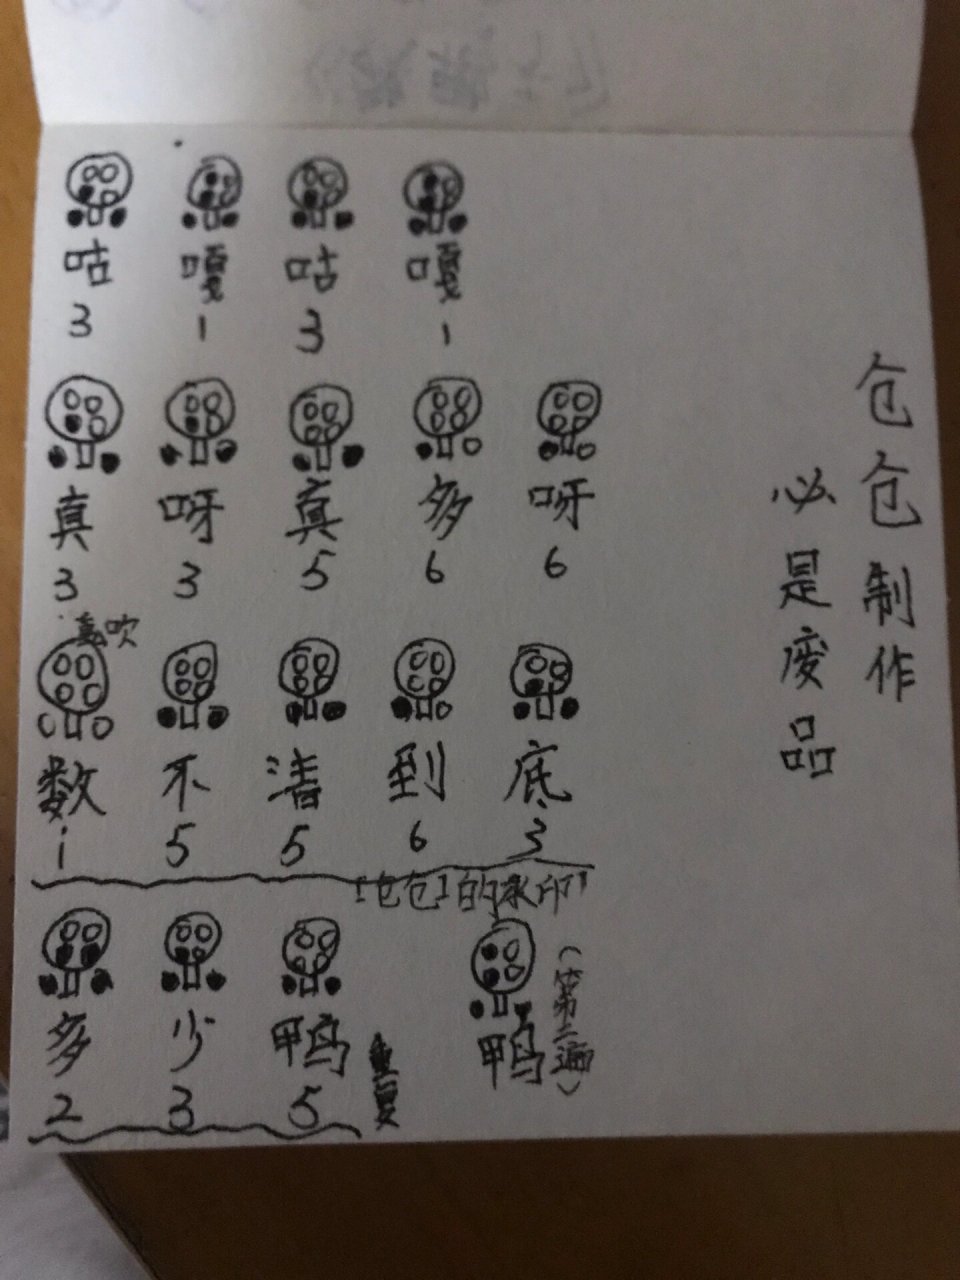 咕 嘎 咕 嘎
3 1 3 1
真 呀 真 多 呀
3 3 5 6 6
急吹
数 不 清 到 底
i 5 5 6 3
【仓仓】的水印
多 少 鸭
2 3 5
重要
鸭
(第二遍)
仓仓制作
必是废品